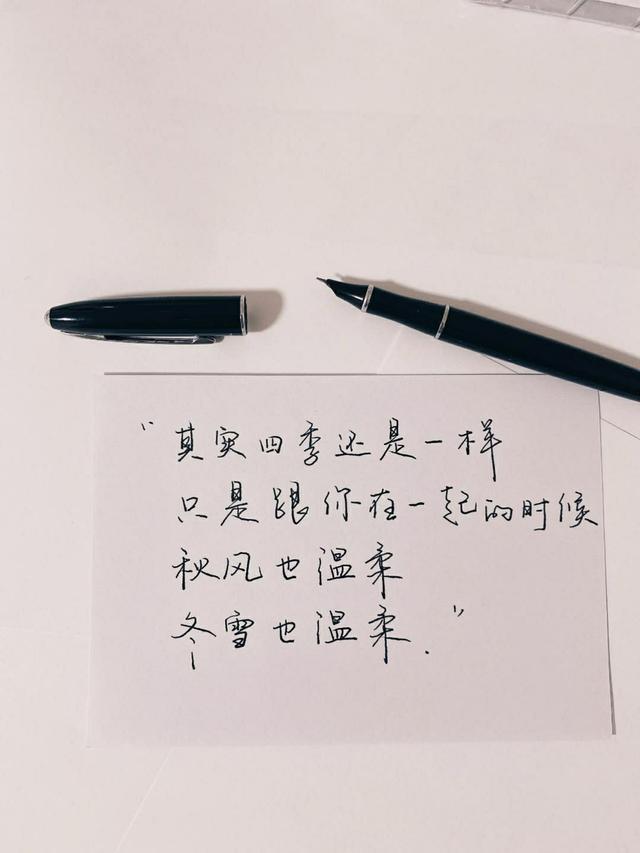 “其实四季还是一样
只是跟你在一起的时候
秋风也温柔
冬雪也温柔.”